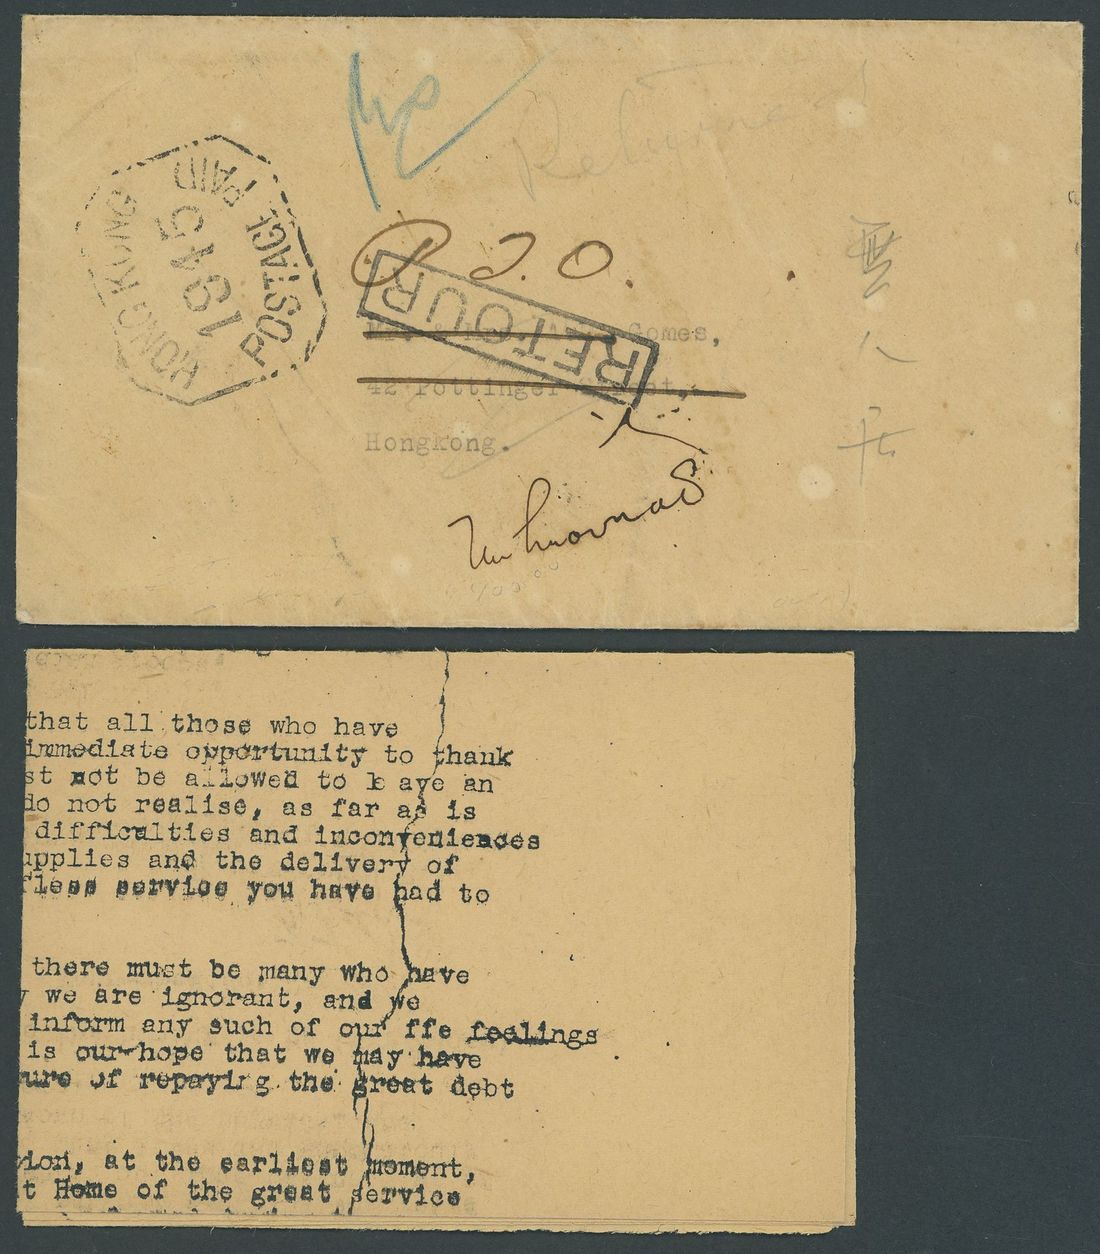 Returned
HONG KONG
1945
POSTAGE PAID
R.L.O.
RETOUR
Gomes,
42 Pottinger
Hongkong.
Unknown
無
人
that all those who have
immediate opportunity to thank
st not be allowed to leave an
do not realise, as far as is
difficulties and inconveniences
upplies and the delivery of
fless service you have had to
there must be many who have
y we are ignorant, and we
inform any such of our ffe feelings
is our hope that we may have
ure of repaying the great debt
ion, at the earliest moment,
t Home of the great service